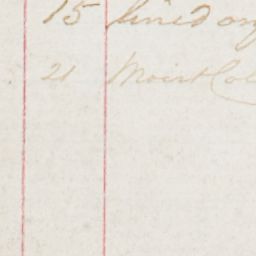 15 lined on
21 Moist Col